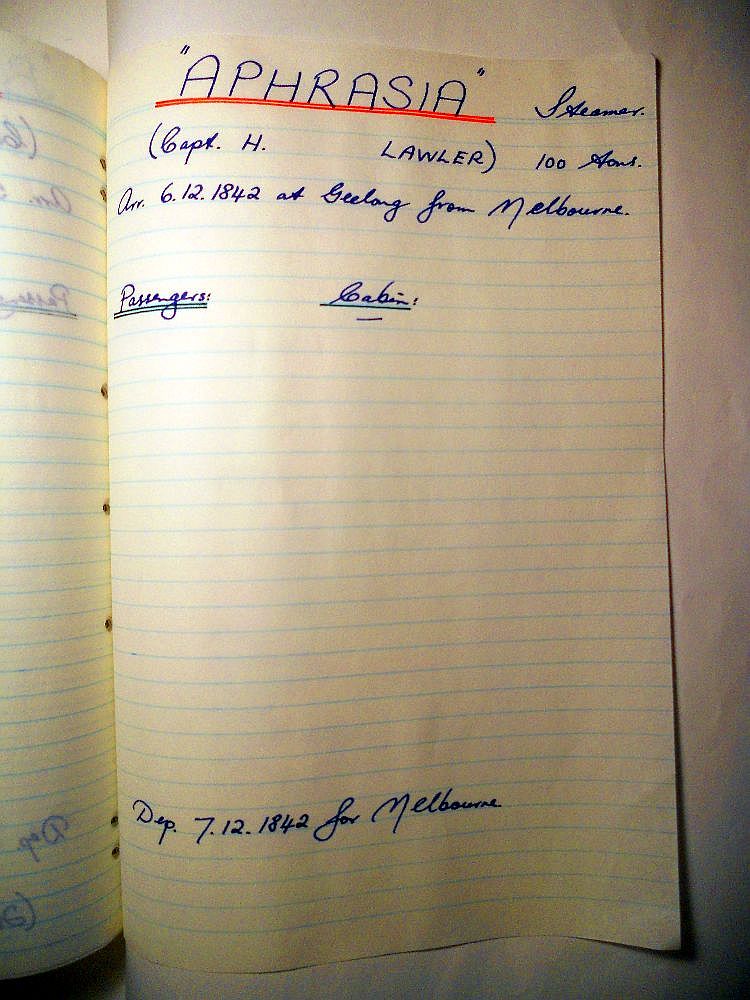 "APHRASIA" Steamer.
(Capt. H. LAWLER) 100 tons.
Arr. 6.12.1842 at Geelong from Melbourne.
Passengers: Cabin:
—
Dep. 7.12.1842 for Melbourne